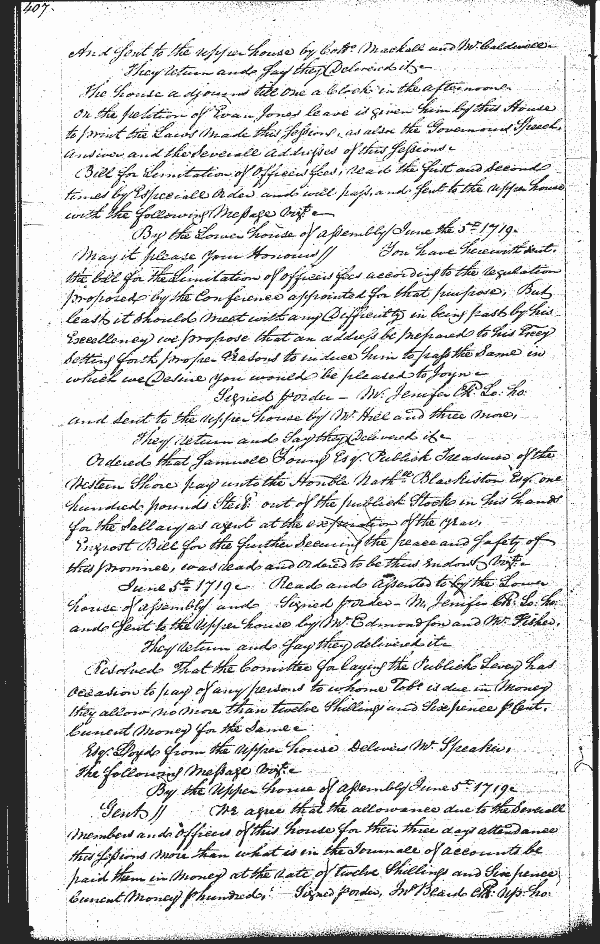 407.
And Sent to the upper house by Coll.o Mackall and Mr. Caldwell
They return and Say they Delivered it
The house adjourns till one a Clock in the afternoon
On the petition of Evan Jones leave is given him by this House
to print the Laws made this Sessions, as also the Governours Speech,
answer and the Severall addresses of this Sessions
Bill for Limitation of Officers fees, read the first and Second
times by Especiall order and will pass, and Sent to the upper house
with the following Message Vizt.
By the Lower house of Assembly June the 5th. 1719
May it please your Honours // You have herewith Sent.
the bill for the Limitation of Officers fees according to the regulation
proposed by the Conference appointed for that purpose, But
least it Should meet with any Difficulty in being past by his
Excellency we propose that an address be prepared to his Excy
Setting forth proper reasons to induce him to pass the Same in
which we Desire you would be pleased to Joyn
Signed p order - M. Jenifer Clk. Lo: ho:
and Sent to the upper house by Mr. Hill and three more,
They return and Say they Delivered it
Ordered that Samuell Young Esq. Publick Treasurer of the
Western Shore pay unto the Honble Nathll. Blackiston Esq. one
hundred pounds Sterl. out of the publick Stock in his hands
for the Sallary as agent at the expiration of the year.
Engrost Bill for the further Securing the peace and Safety of
this province, was read and Ordered to be thus Endorsd. Vizt.
June 5th. 1719 Read and assented to by the Lower
house of Assembly and Signed p order - M. Jenifer Clk. Lo: ho:
and Sent to the upper house by Mr. Edmondson and Mr. Fisher,
They return and Say they delivered it
Resolved That the Comittee for laying the Publick Levey has
Occasion to pay of any persons to whome Tobo. is due in Money
they allow no more than twelve Shillings and Sixpence p Cent,
Current Money for the Same
Esq. Lloyd from the Upper house Delivers Mr. Speaker,
the following Message Vizt.
By the Upper house of Assembly June 5th. 1719
Gent // We agree that the allowance due to the Severall
members and Officers of this house for their three days attendance
this Sessions more than what is in the Journale of accounts be
paid them in Money at the rate of twelve Shillings and Sixpence
Current Money p hundred. Signed p order, Jno. Beard Clk: Up: ho: